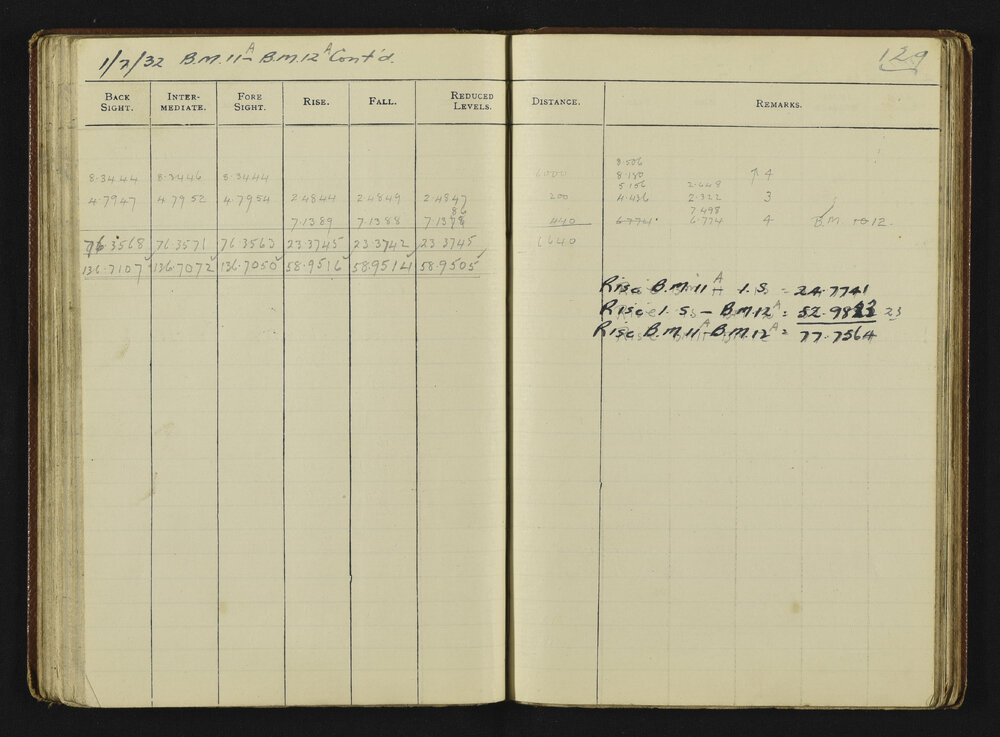 1/7/32 B.M.11A - B.M.12A Cont'd.
129
BACK SIGHT. INTER-MEDIATE. FORE SIGHT. RISE. FALL. REDUCED LEVELS. DISTANCE. REMARKS.
8.506
8.3444 8.3446 8.3444 6000 8.180 ↑ 4
5.156 2.648
4.7947 4.7952 4.7954 2.4844 2.4849 2.4847 200 4.436 2.322 3
86 7.498
7.1389 7.1388 7.1378 440 6.774 6.774 4 B.M. to 12.
76.3568 76.3571 76.3563 23.3745 23.3742 23.3745 6640
136.7107 136.7072 136.7050 58.9516 58.9514 58.9505
Rise B.M.11A - I.S. = 24.7741
Rise I.S - B.M.12A = 52.9823 23
Rise B.M.11A - B.M.12A = 77.7564